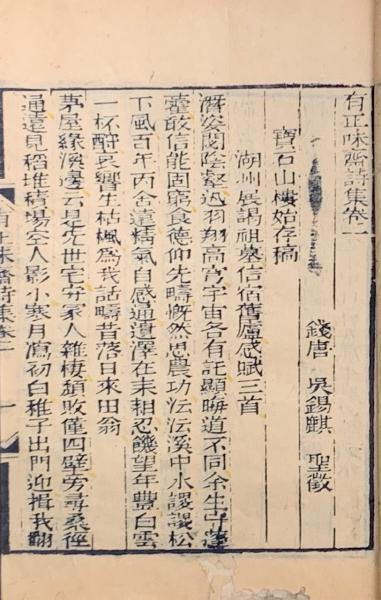 有正味齋詩集卷一
錢唐 吳錫麒 聖徵
寶石山樓始存稿
湖州展謁祖墓信宿舊廬感賦三首
潛姿閟陰壑迅羽翔高穹宇宙各有託顯晦道不同余生守蓬
藿敢信能固窮食德仰先疇慨然思農功沄沄溪中水謖謖松
下風百年丙舍遠精氣自感通遺澤在耒耜忍饑望年豐白雲
一杯酹哀響生枯楓為我話疇昔落日來田翁
茅屋緣溪邊云是先世宅安家人雜棲頹敗僅四壁旁尋桑徑
通遠見稻堆積場空人影小寒月瀉初白稚子出門迎揖我翻
有正味齋詩集卷一 一